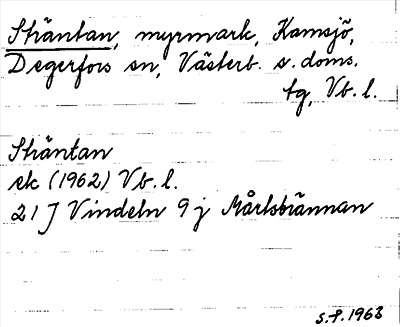 Sträntan, myrmark, Kamsjö,
Degerfors sn, Västerb. s. doms.
tg, Vb. l.
Sträntan
ek (1962) Vb. l.
21 J Vindeln 9 j Mårtsbrännan
S.P. 1963